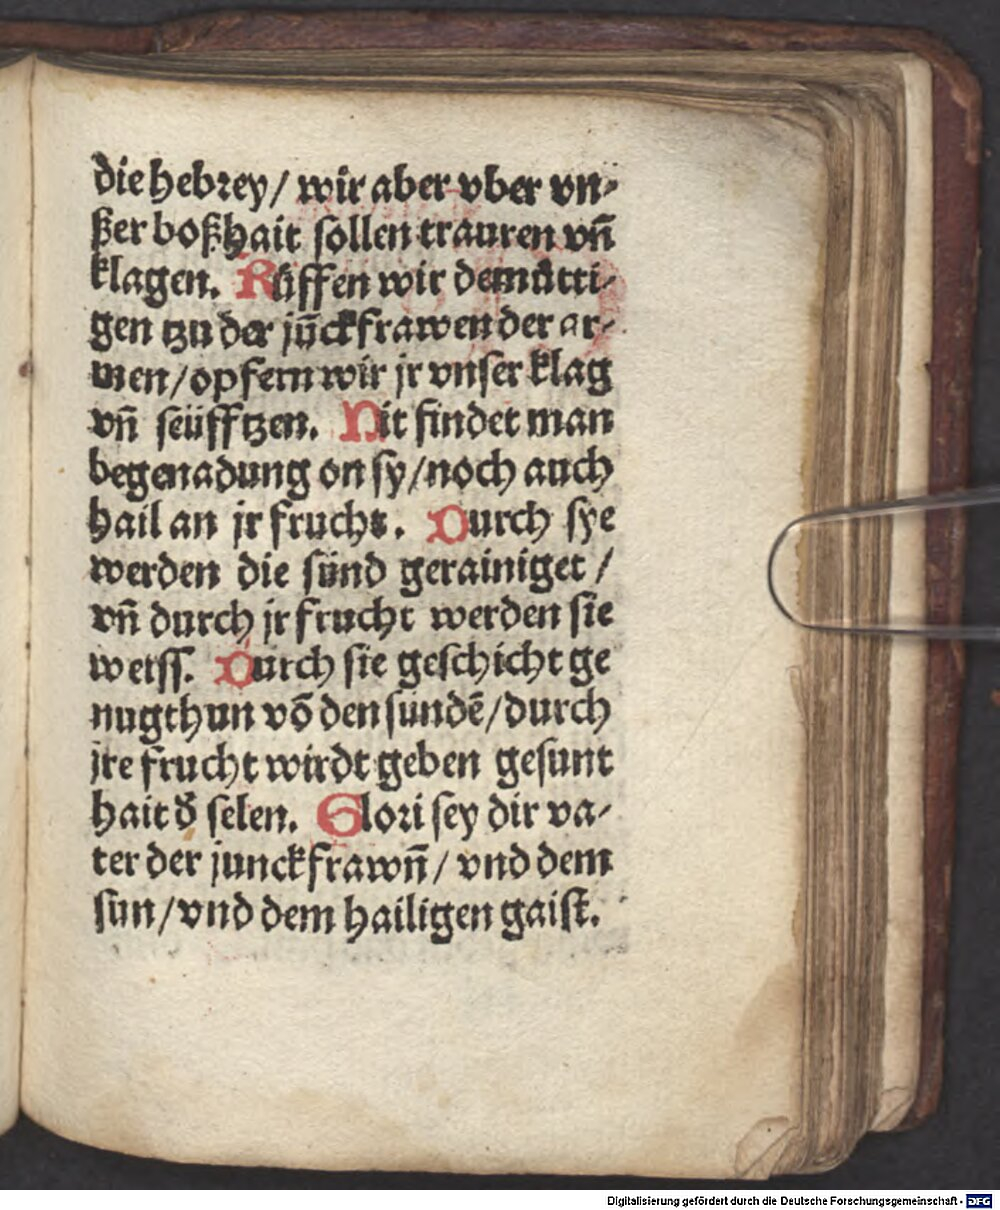 die hebrey/ wir aber vber vn⸗
ßer boßhait sollen trauren vñ
klagen. Rüffen wir demütti⸗
gen tzu der jūckfrawen der ar⸗
men/opfern wir jr vnser klag
vñ seüfftzen. Nit findet man
begenadung on sy/noch auch
hail an jr frucht. Durch sye
werden die sünd gerainiget /
vñ durch jr frucht werden sie
weiss. Durch sie geschicht ge
nugthun võ den sundẽ/durch
jre frucht wirdt geben gesunt
hait d̕ selen. Glori sey dir va⸗
ter der junckfrawñ/ vnd dem
sün/vnd dem hailigen gaist.
Digitalisierung gefördert durch die Deutsche Forschungsgemeinschaft - DFG